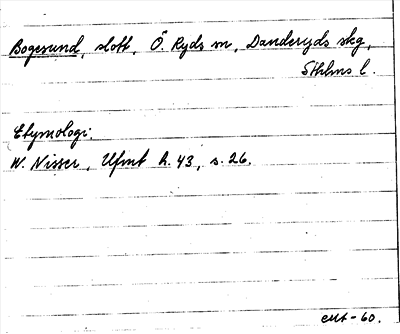 Bogesund, slott, Ö. Ryds sn, Danderyds skg,
Sthlms l.
Etymologi:
W. Nisser, Ufmt h. 43, s. 26.
-60.